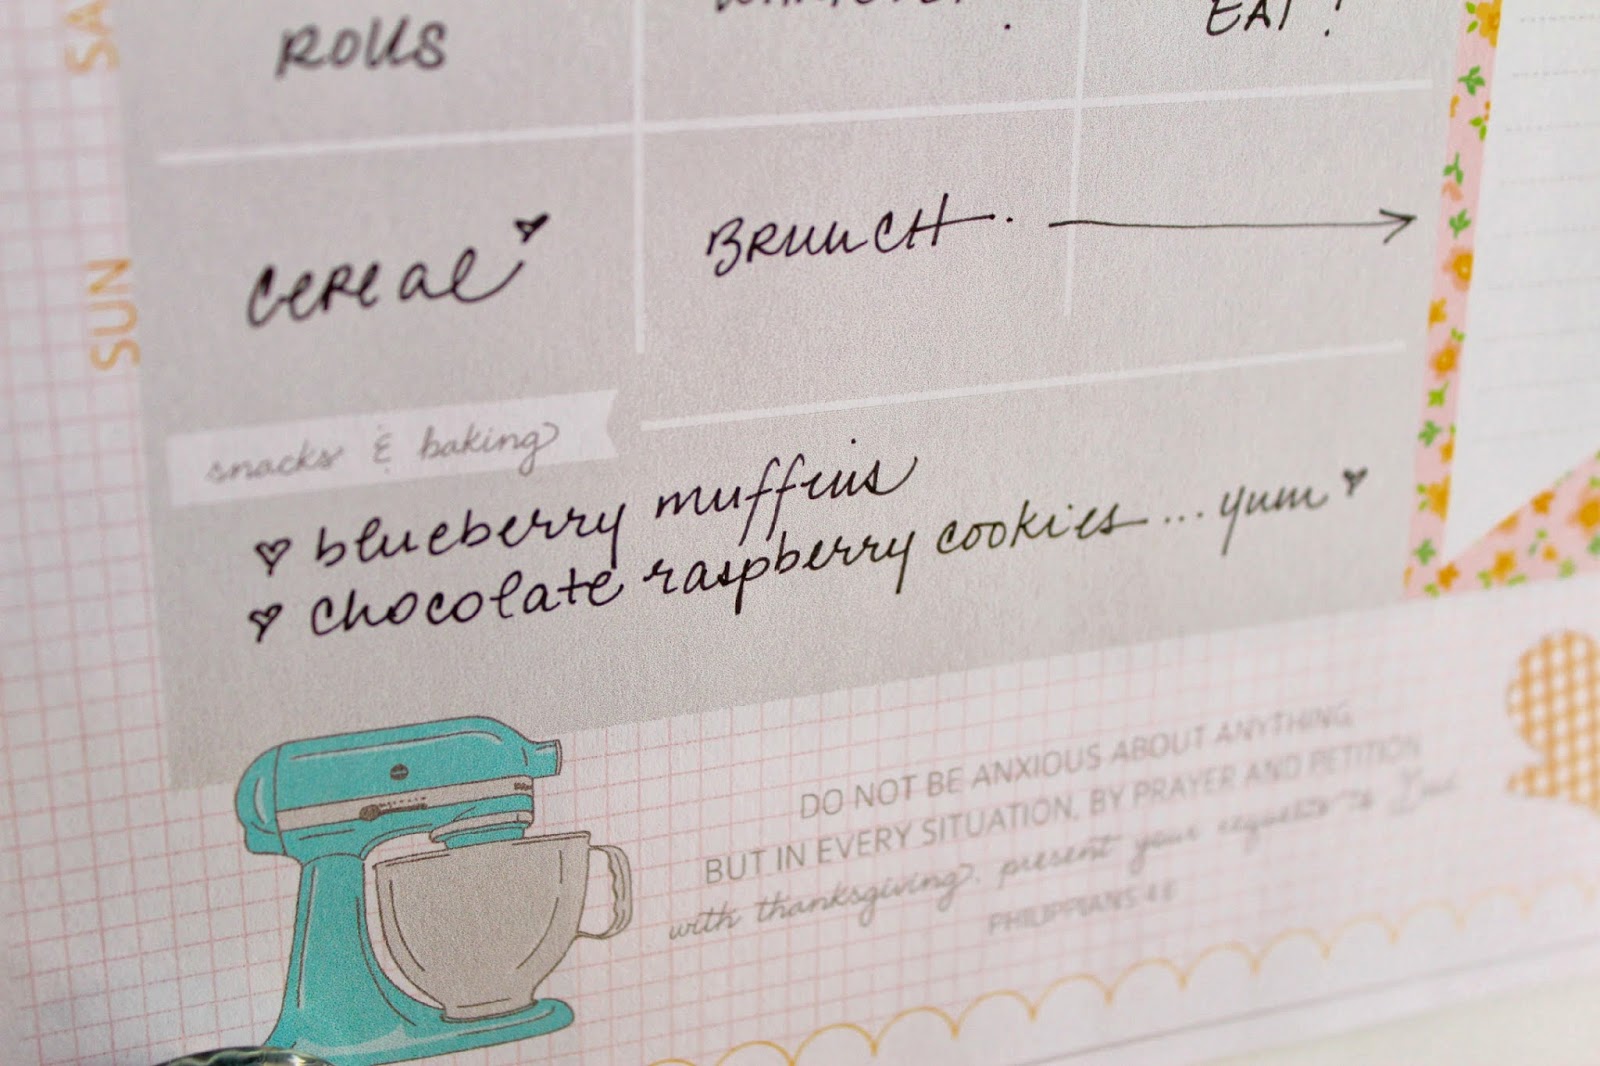 SA
ROLLS
EAT!
SUN
CEREAL
BRUNCH..
snacks & baking
blueberry muffins
chocolate raspberry cookies...yum
DO NOT BE ANXIOUS ABOUT ANYTHING
BUT IN EVERY SITUATION, BY PRAYER AND PETITION
with thanksgiving, present your requests to God
PHILIPPIANS 4:6